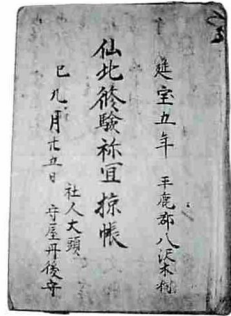 延宝五年 平鹿郡八沢木村
仙北修験祢宜掠帳
巳九月廿五日 社人大頭
守屋丹後守